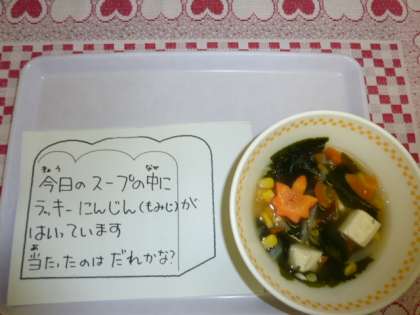 今日のスープの中に
ラッキーにんじん(もみじ)が
はいっています
当たったのはだれかな?